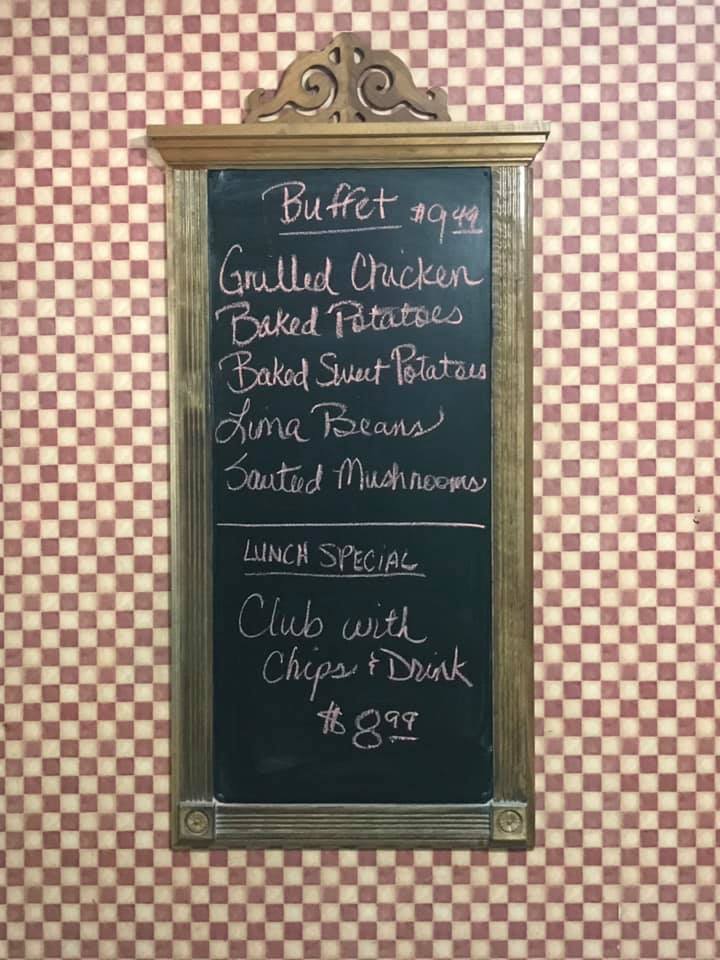 Buffet $9.49
Grilled Chicken
Baked Potatoes
Baked Sweet Potatoes
Lima Beans
Sauteed Mushrooms
LUNCH SPECIAL
Club with
Chips & Drink
$8.99